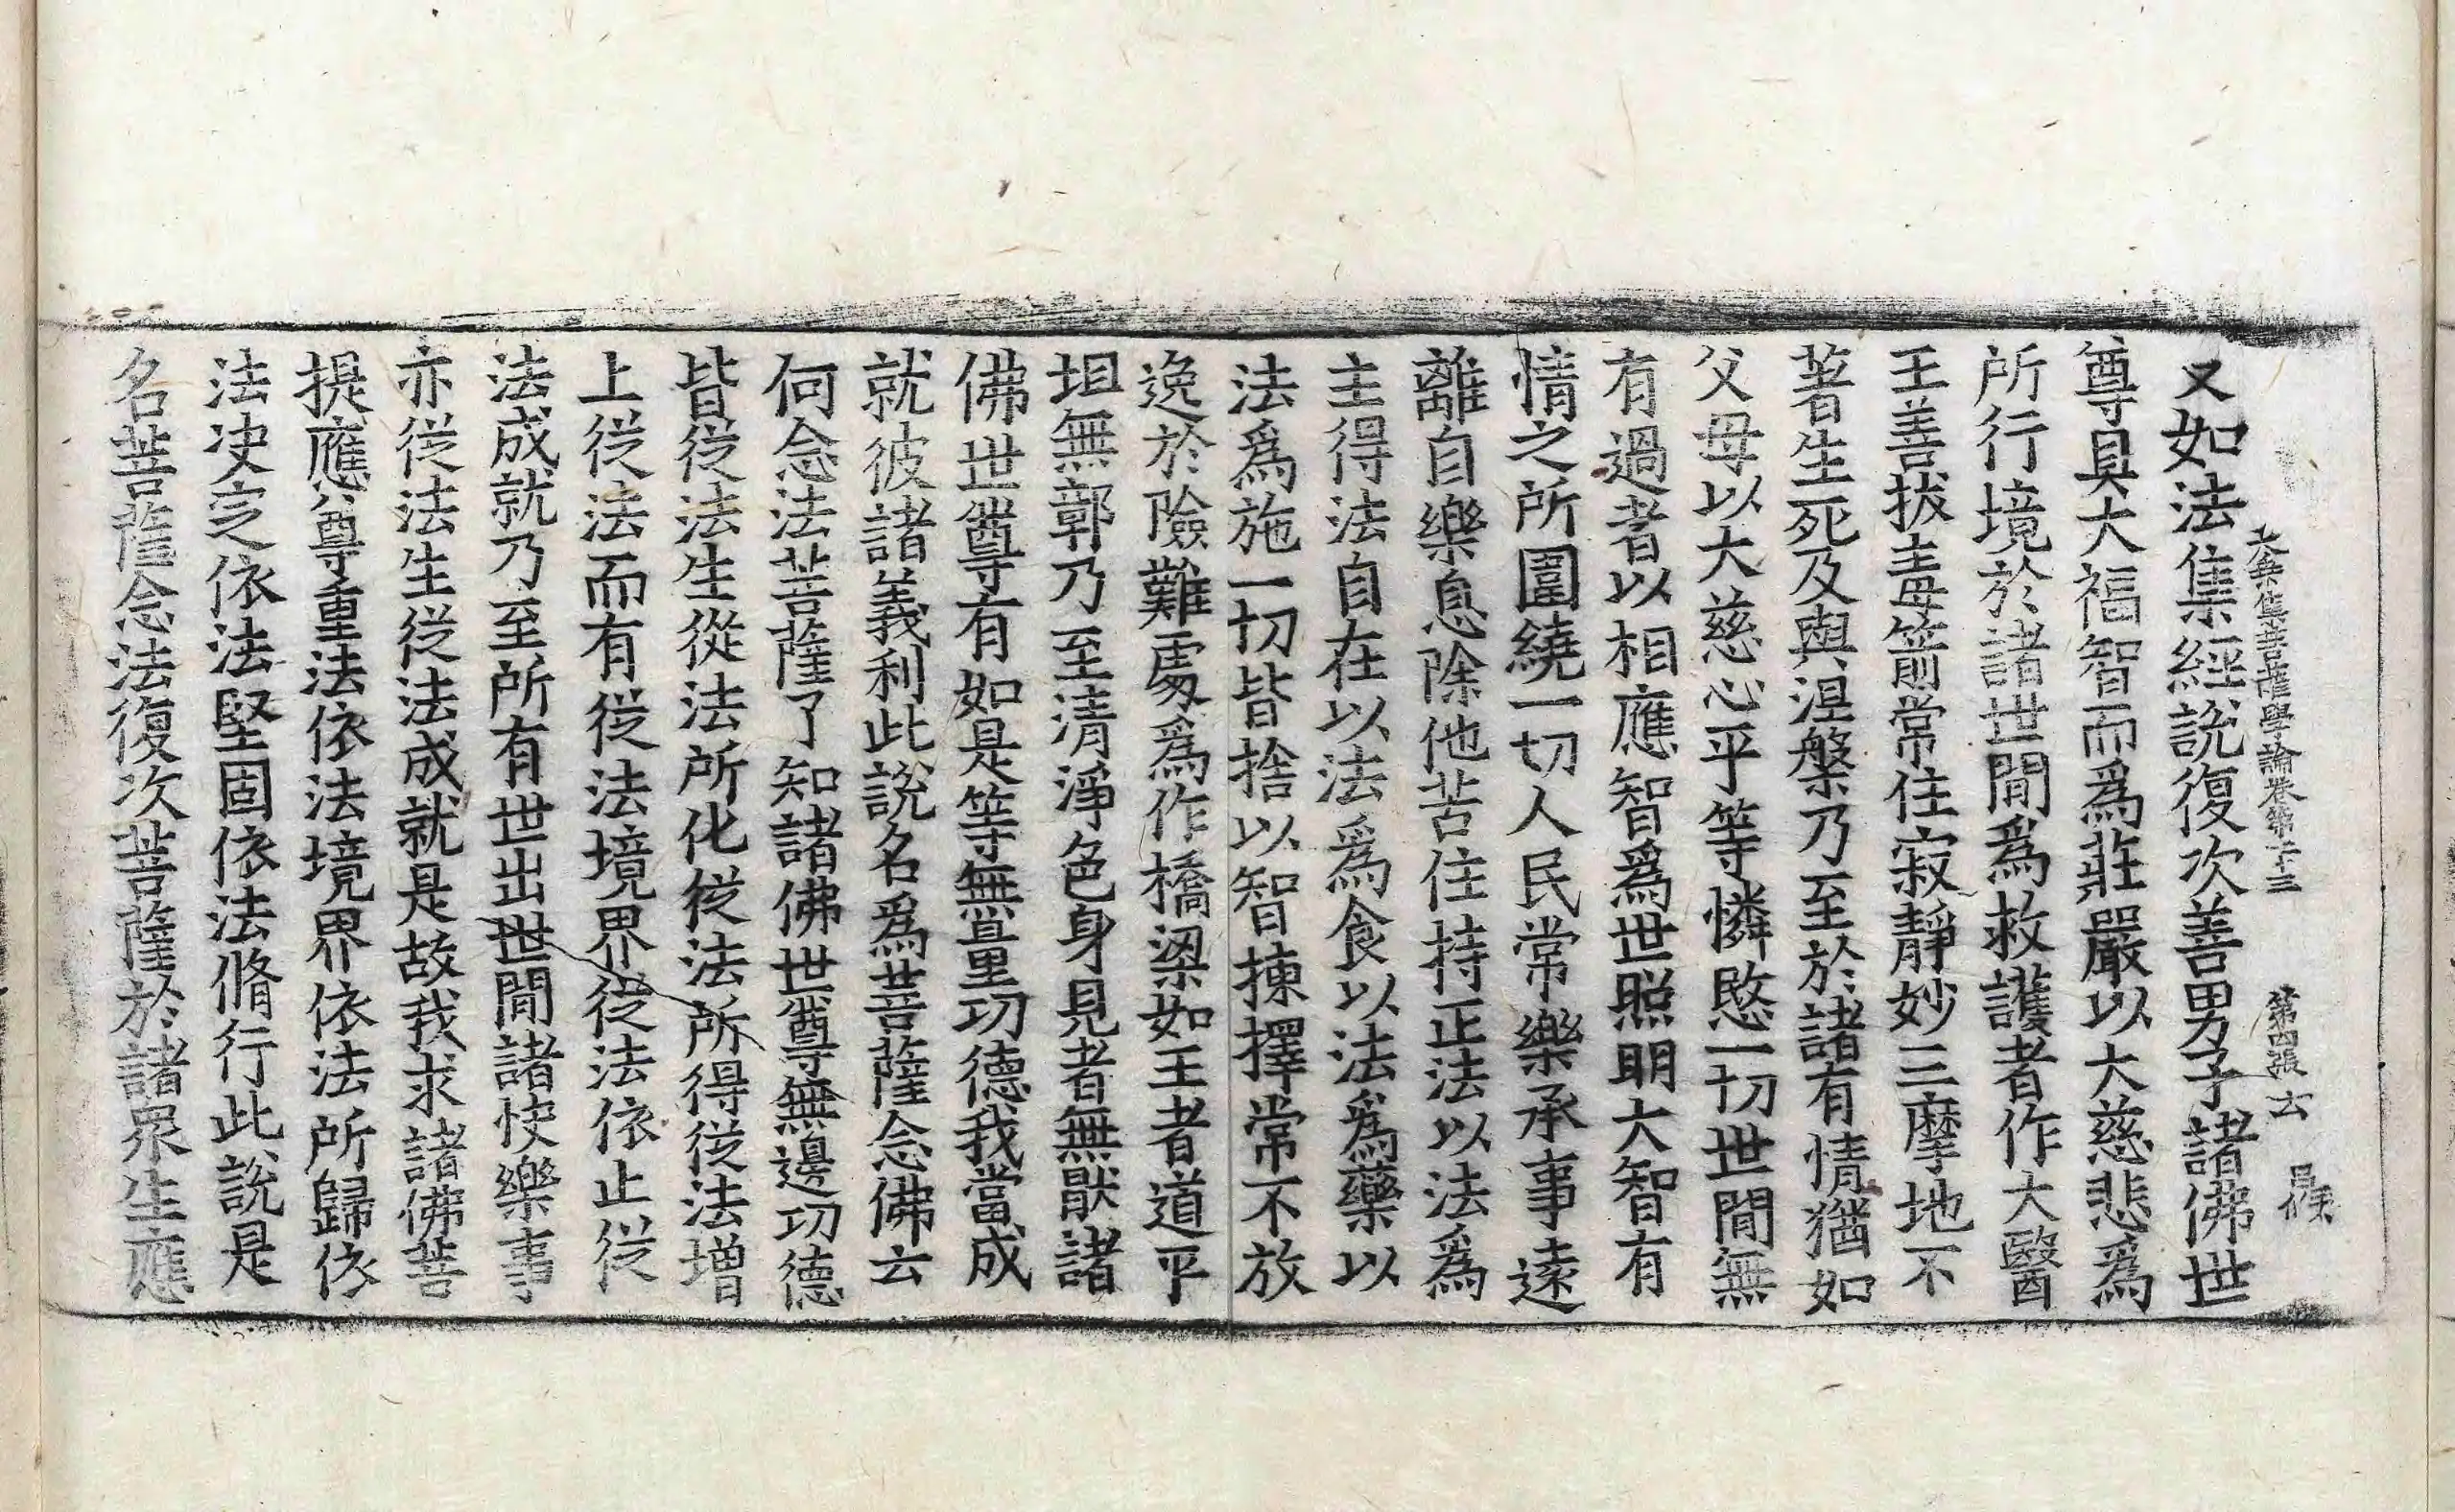 大乘集菩薩學論卷第二十三 第四張 云
又如法集經說復次善男子諸佛世
尊具大福智而爲莊嚴以大慈悲爲
所行境於諸世間爲救護者作大醫
王善拔主毒箭常住寂靜妙三摩地不
著生死及與涅槃乃至於諸有情猶如
父母以大慈心平等憐愍一切世間無
有過者以相應智爲世照明大智有
情之所圍繞一切人民常樂承事遠
離自樂息除他苦住持正法以法爲
主得法自在以法爲食以法爲藥以
法爲施一切皆捨以智揀擇常不放
逸於險難處爲作橋梁如王者道平
坦無鄣乃至清淨色身見者無猒諸
佛世尊有如是等無量功德我當成
就彼諸義利此說名爲菩薩念佛云
何念法菩薩了知諸佛世尊無邊功德
皆從法生從法所化從法所得從法增
上從法而有從法境界從法依止從
法成就乃至所有世出世間諸快樂事
亦從法生從法成就是故我求諸佛菩
提應尊重法依法境界依法所歸依
法決定依法堅固依法脩行此說是
名菩薩念法復次菩薩於諸衆生應